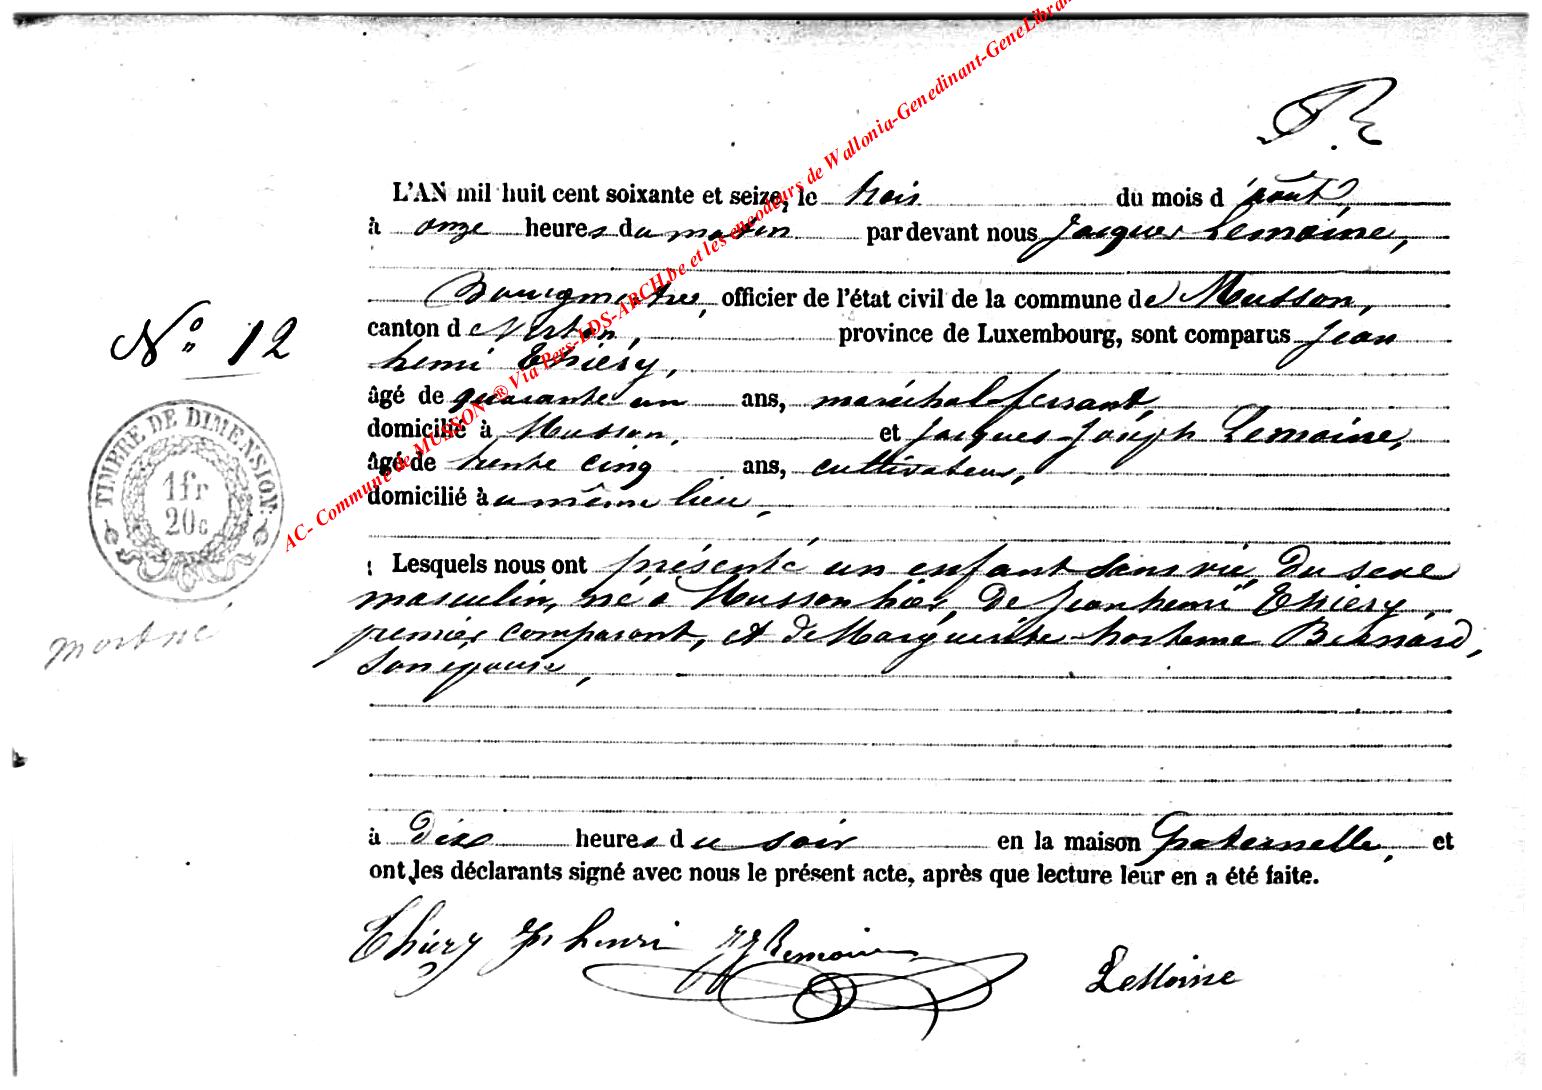 AC- Commune de MUSSON-® Via Pers-LDS-ARCH.be et les encodeurs de Wallonia-Genedinant-GeneLibran
L'AN mil huit cent soixante et seize, le trois du mois d'août,
à onze heures du matin pardevant nous Jacques Lemoine,
Bourgmestre, officier de l'état civil de la commune de Musson,
canton de Virton, province de Luxembourg, sont comparus Jean
henri Thiéry,
âgé de quarante un ans, maréchal-ferrant,
domicilié à Musson, et Jacques-Joseph Lemoine,
âgé de trente cinq ans, cultivateur,
domicilié au même lieu,
Lesquels nous ont présenté un enfant sans vie, du sexe
masculin, né à Musson hier, de Jean henri Thiéry,
premier comparant, et de Marguerite hortense Bernard,
son épouse,
à dix heures du soir en la maison paternelle, et
ont les déclarants signé avec nous le présent acte, après que lecture leur en a été faite.
Thiery Jn henri JJ Lemoine LeMoine
N° 12
TIMBRE DE DIMENSION
1 fr
20 c
mort né